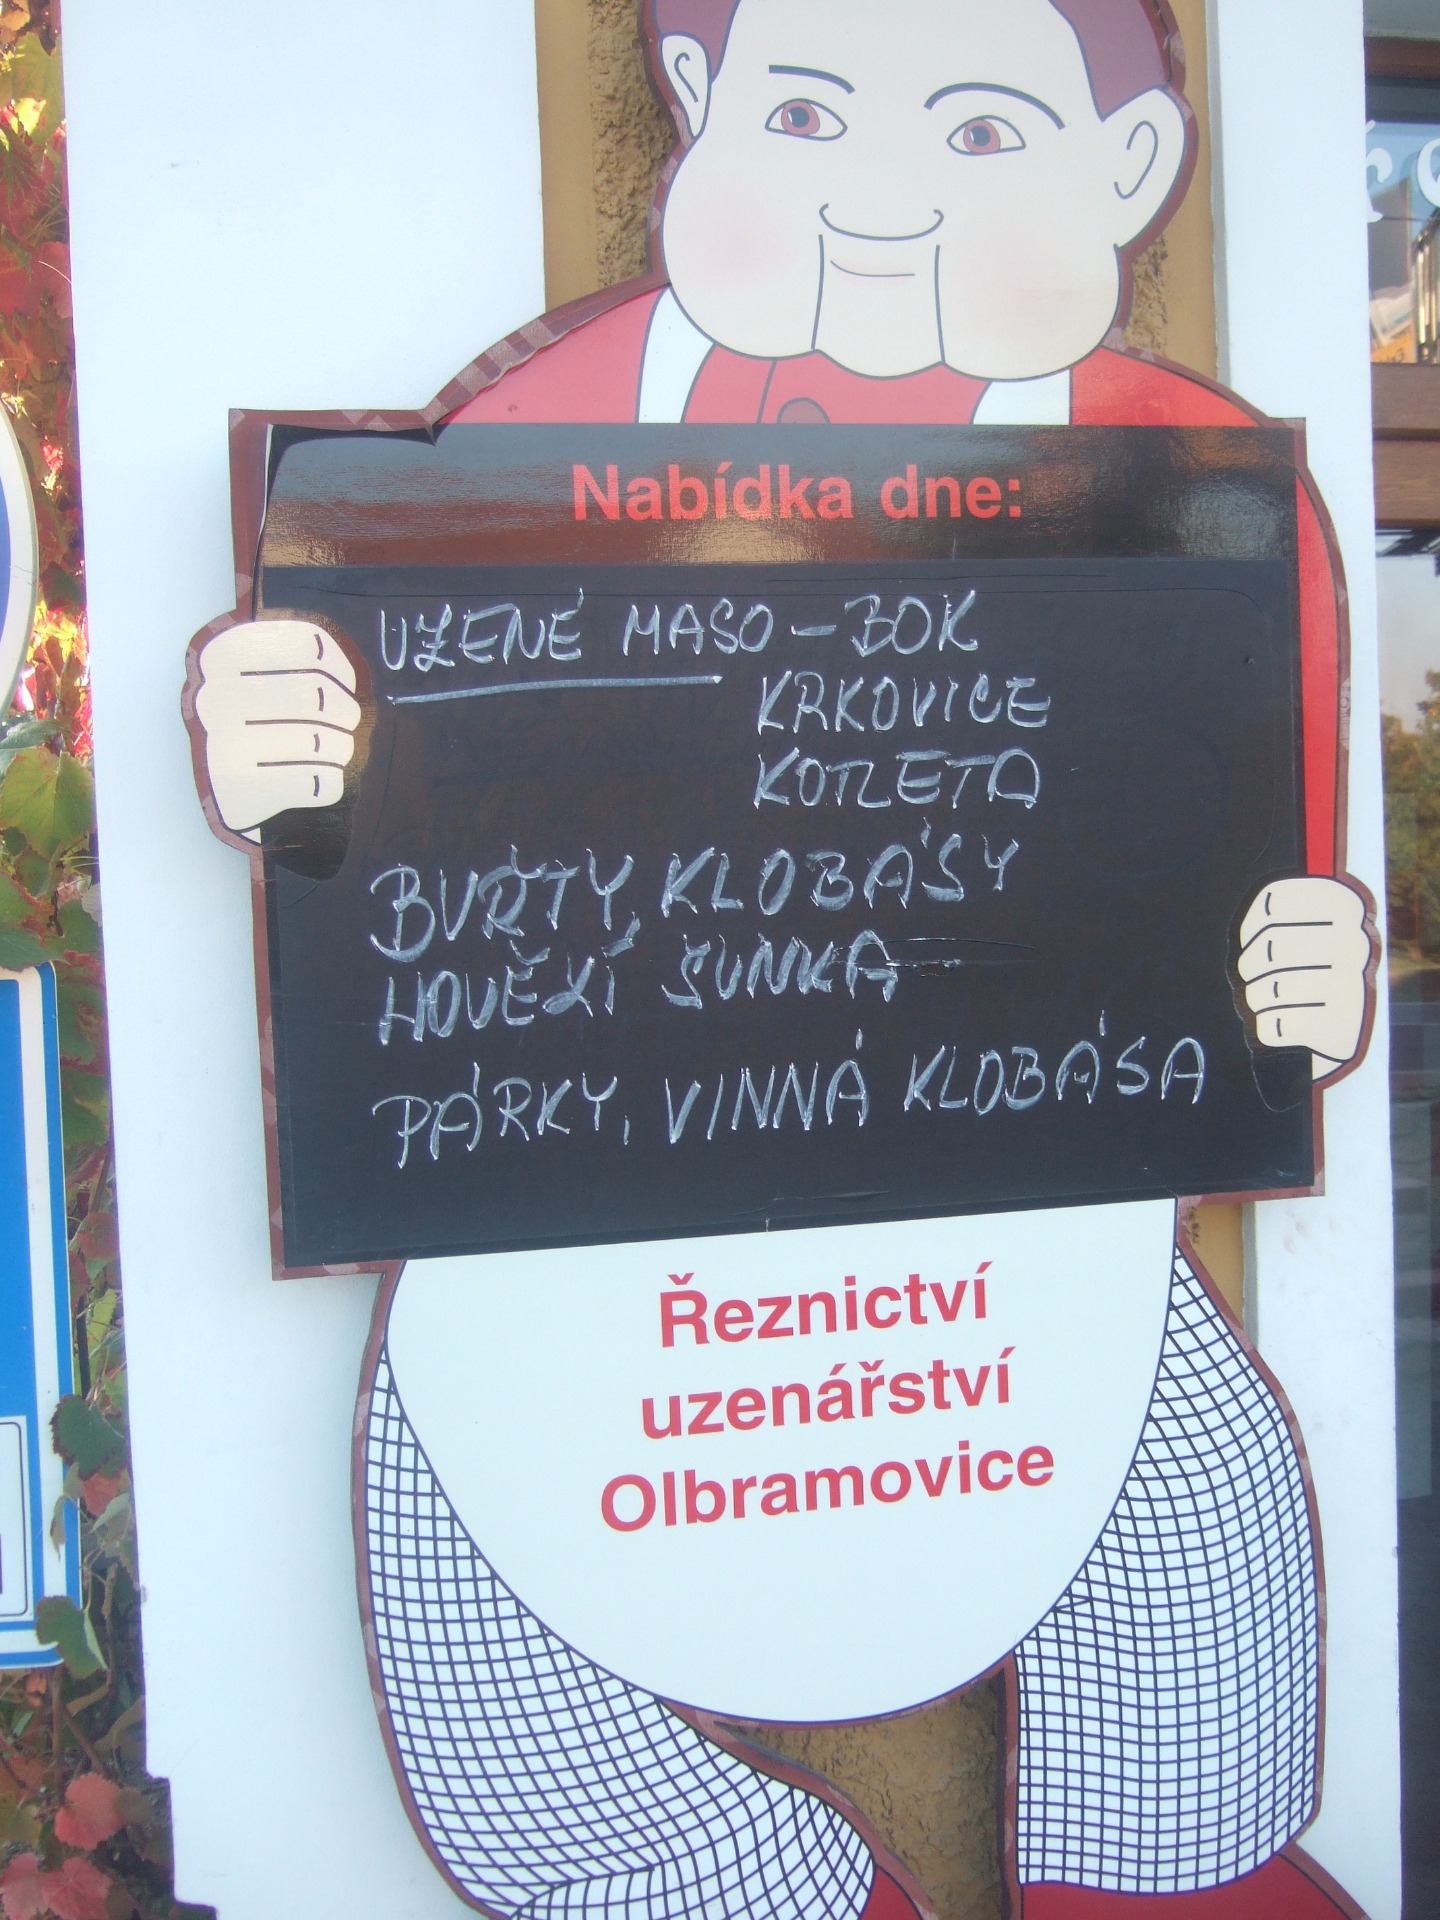 Nabídka dne:
UZENÉ MASO – BOK
KRKOVICE
KOTLETA
BUŘTY, KLOBÁSY
HOVĚZÍ ŠUNKA
PÁRKY, VINNÁ KLOBÁSA
Řeznictví
uzenářství
Olbramovice